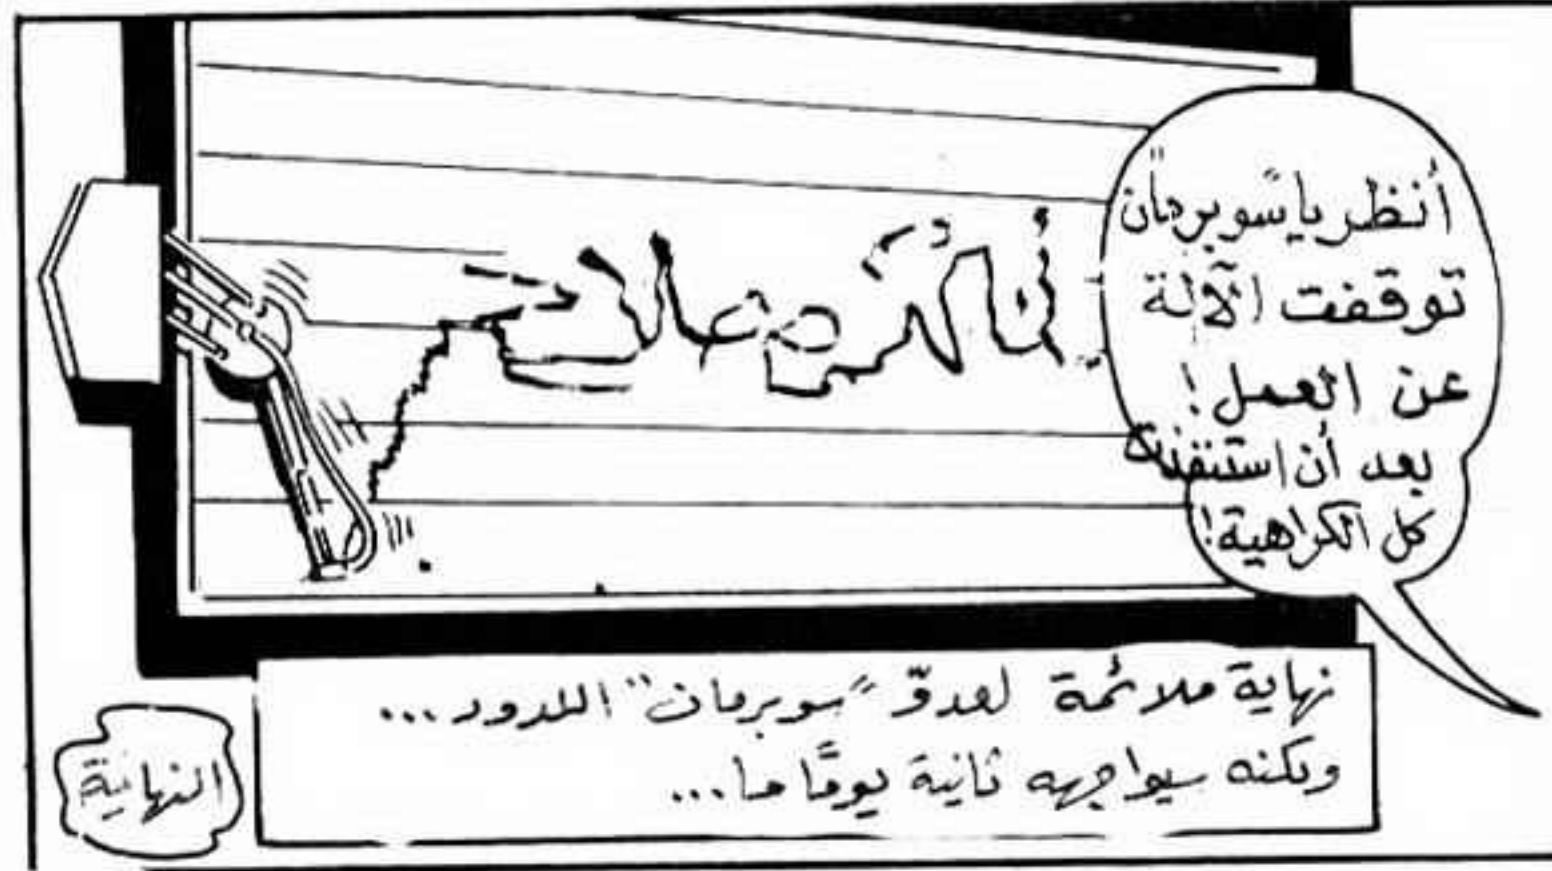 أنظر يا "سوبرمان"
توقفت الآلة
عن العمل!
بعد أن استنفذت
كل الكراهية!
نهاية ملائمة لعدوّ "سوبرمان" اللدود...
ولكنه سيواجهه ثانية يومًا ما...
النهاية